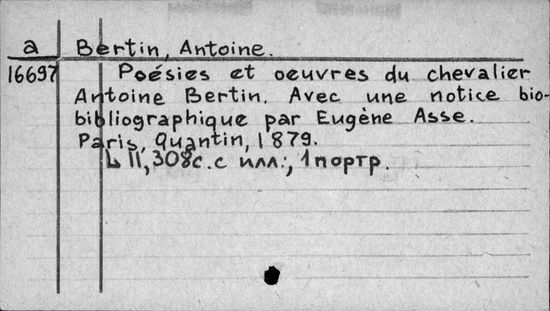 a Bertin, Antoine.
16697 Poésies et oeuvres du chevalier
Antoine Bertin. Avec une notice bio-
bibliographique par Eugène Asse.
Paris, Quantin, 1879.
L II, 308с. с илл., 1 портр.